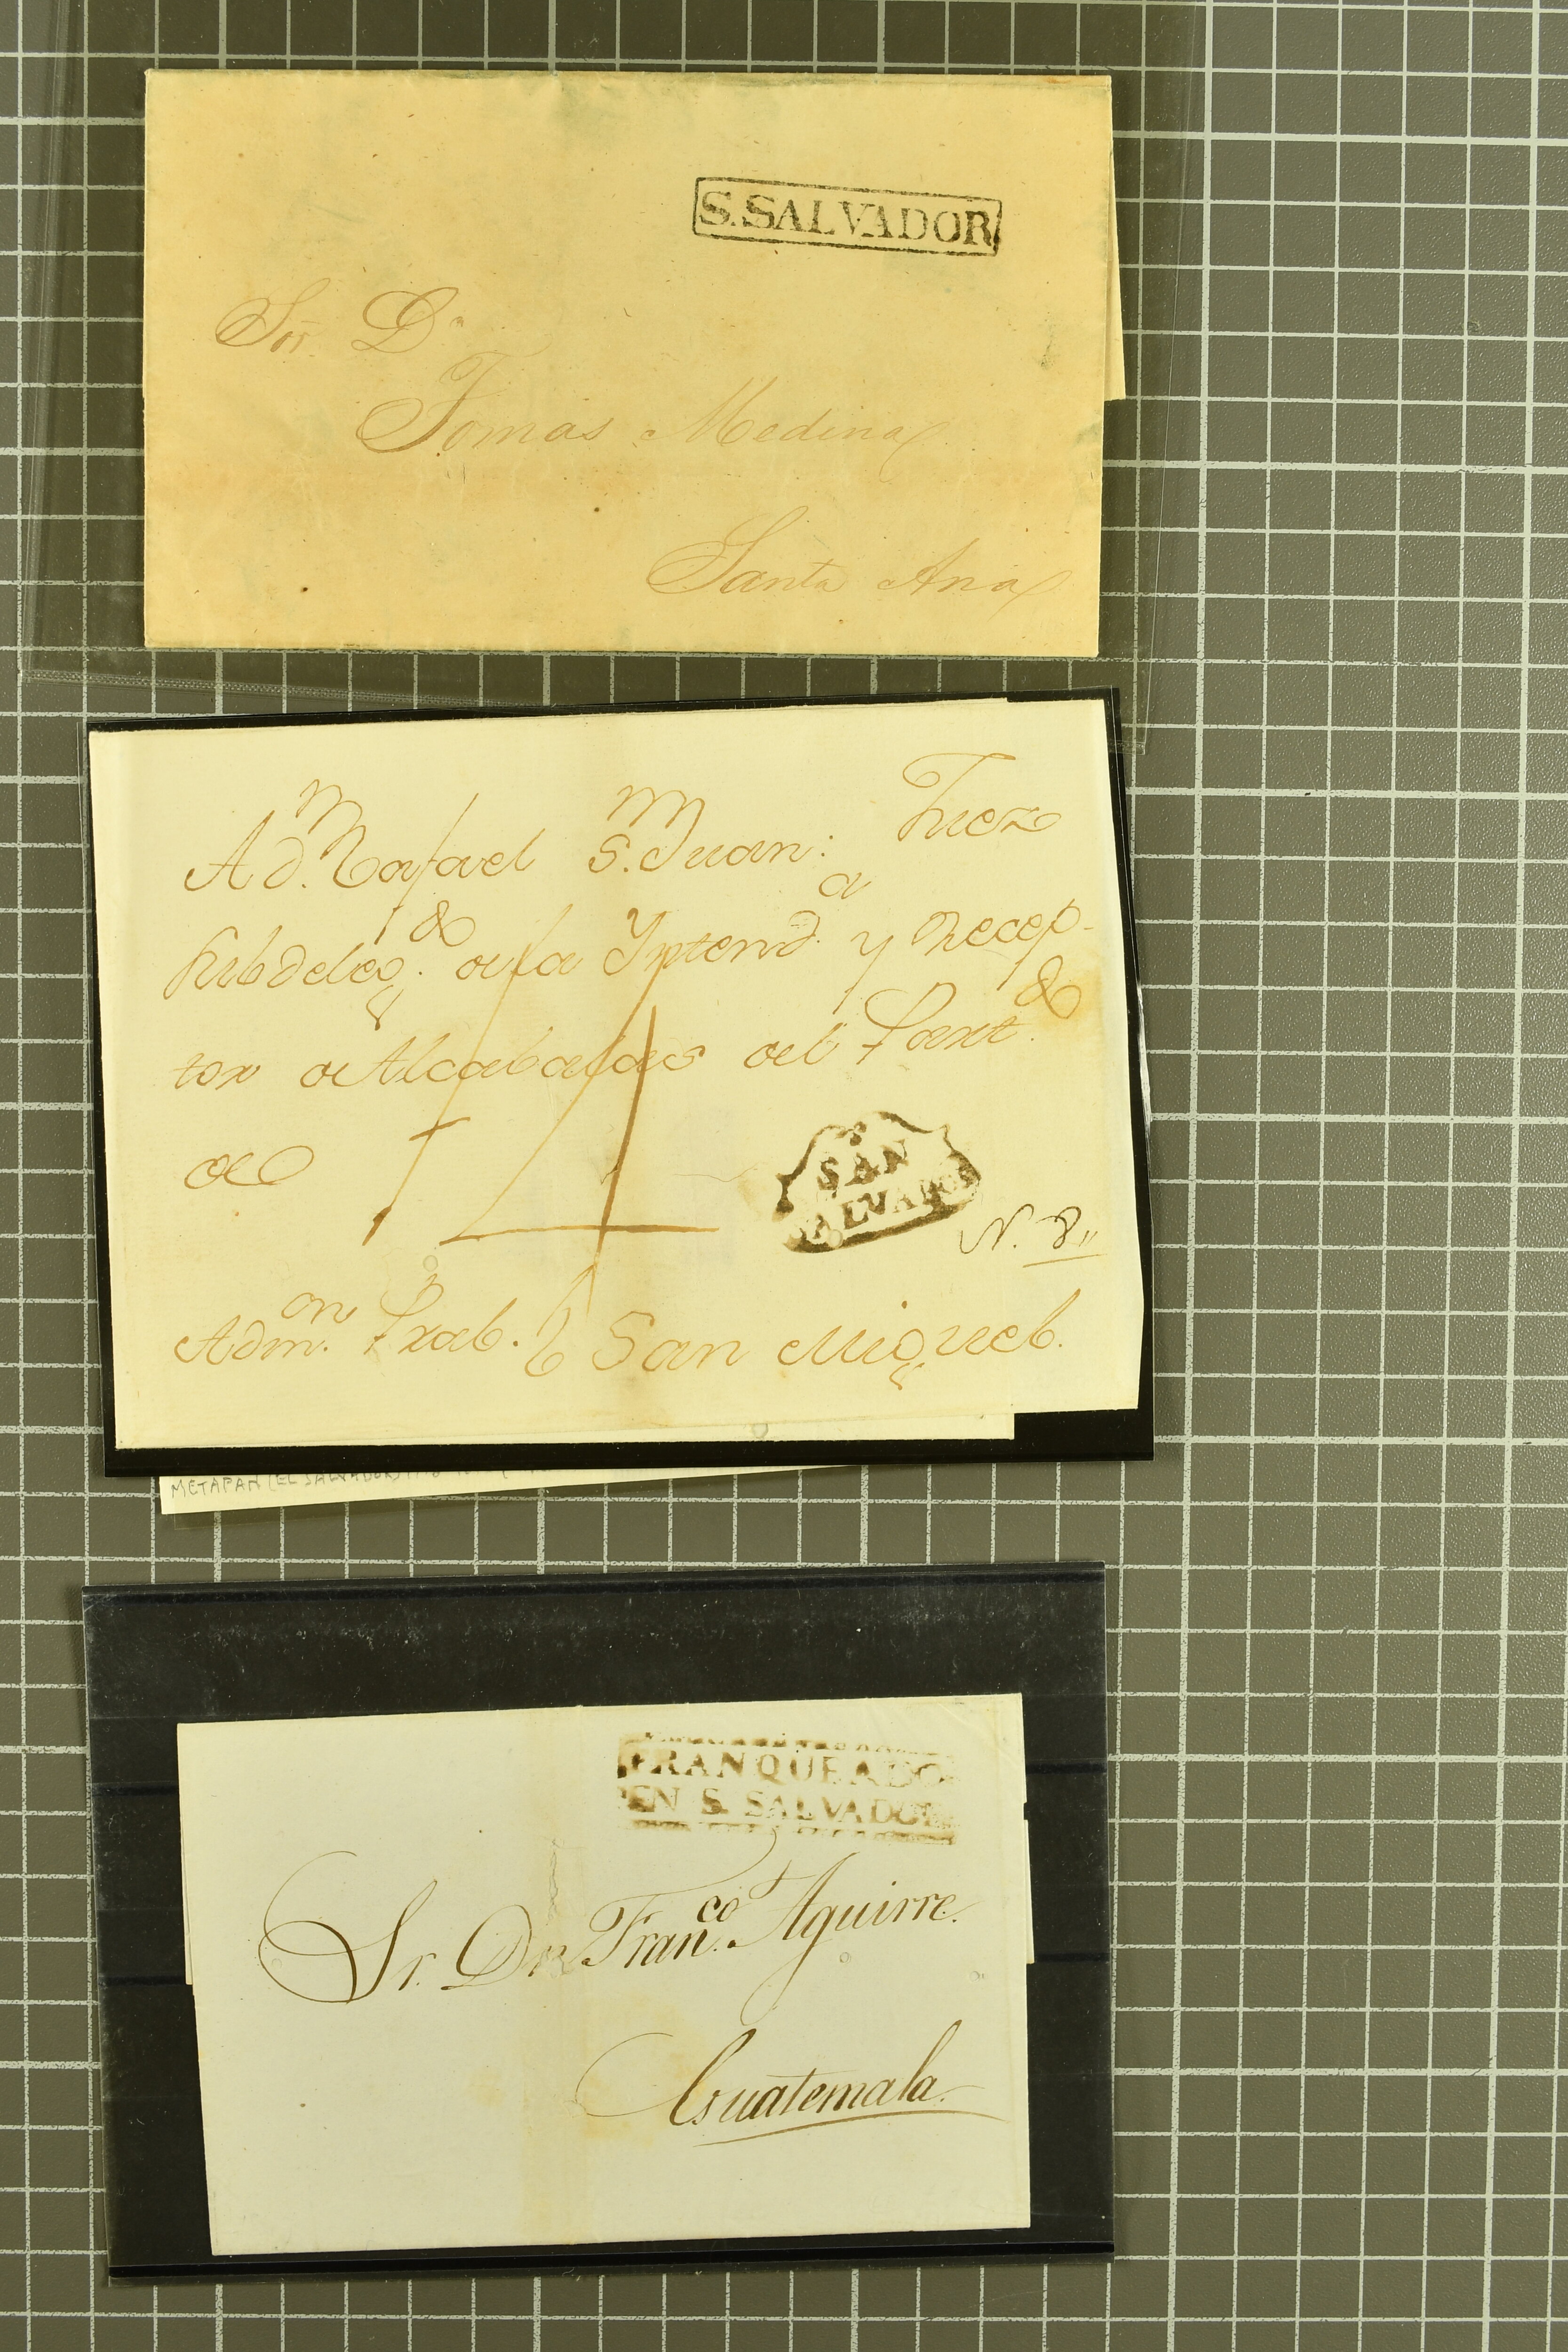 S. SALVADOR
Sor. Dn.
Tomas Medina
Santa Ana
A Dn. Rafael S. Martn. Juez
Subdeleg.do de la Yntend.a y Recep-
tor de Alcabalas del Part.do
de
4
SAN
SALVADOR
N. 8,,
Adm.on Prāl. San Miguel.
METAPAN (EL SALVADOR)
FRANQUEADO
EN S. SALVADOR
Sr. Dn Fran.co Aguirre.
Guatemala.